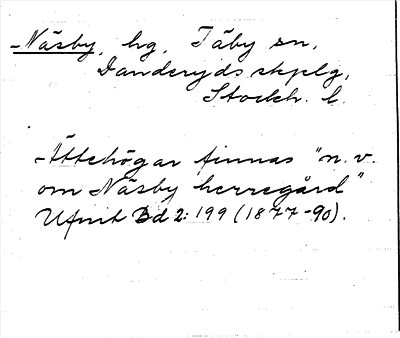 Näsby, hg, Täby sn,
Danderyds skplg,
Stockh. l.
Ättehögar finnas "n.v.
om Näsby herregård"
Ufmit Bd 2: 199 (1877-90).